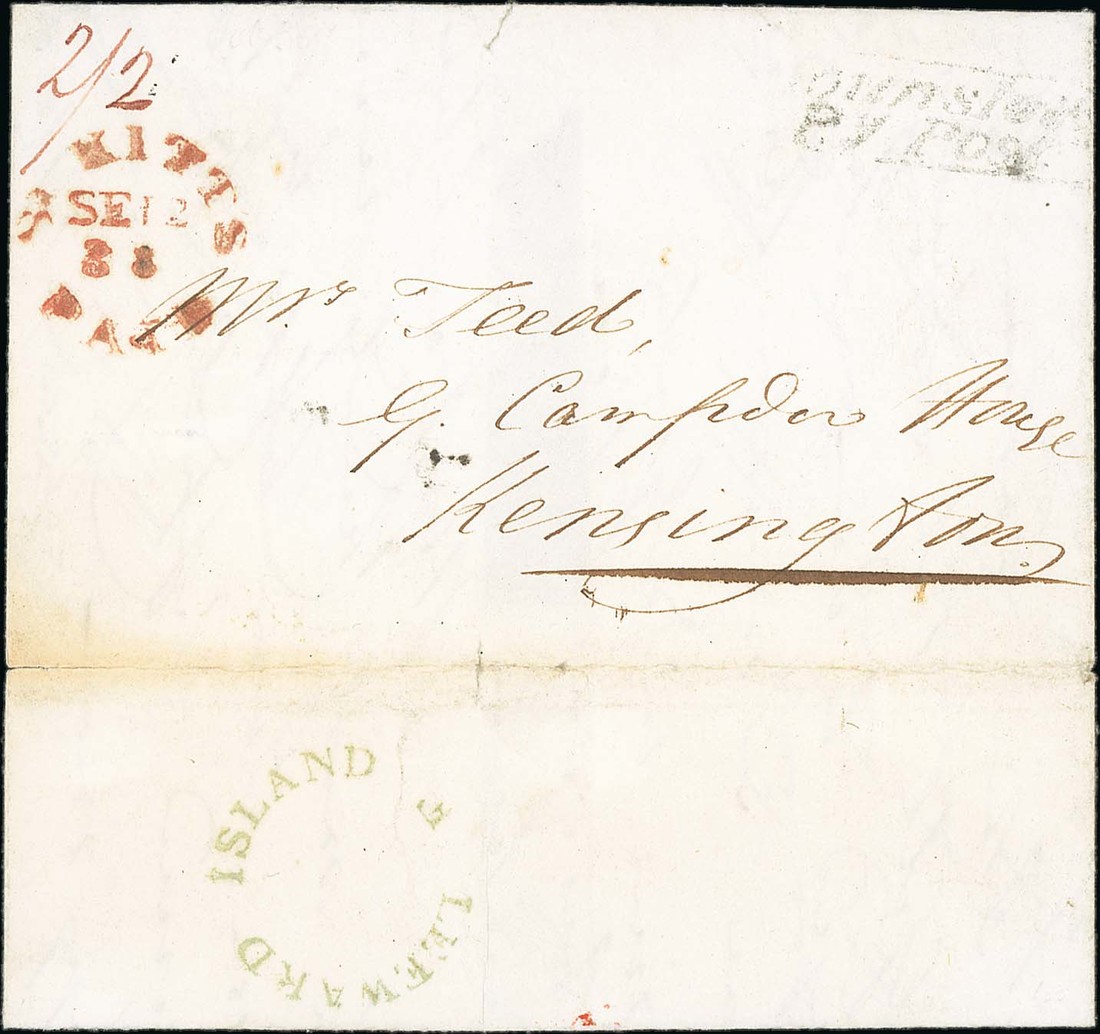 2/2
KITTS
SE 12
Mrs Teed,
Campden House
Kensington
ISLAND
LEEWARD
G